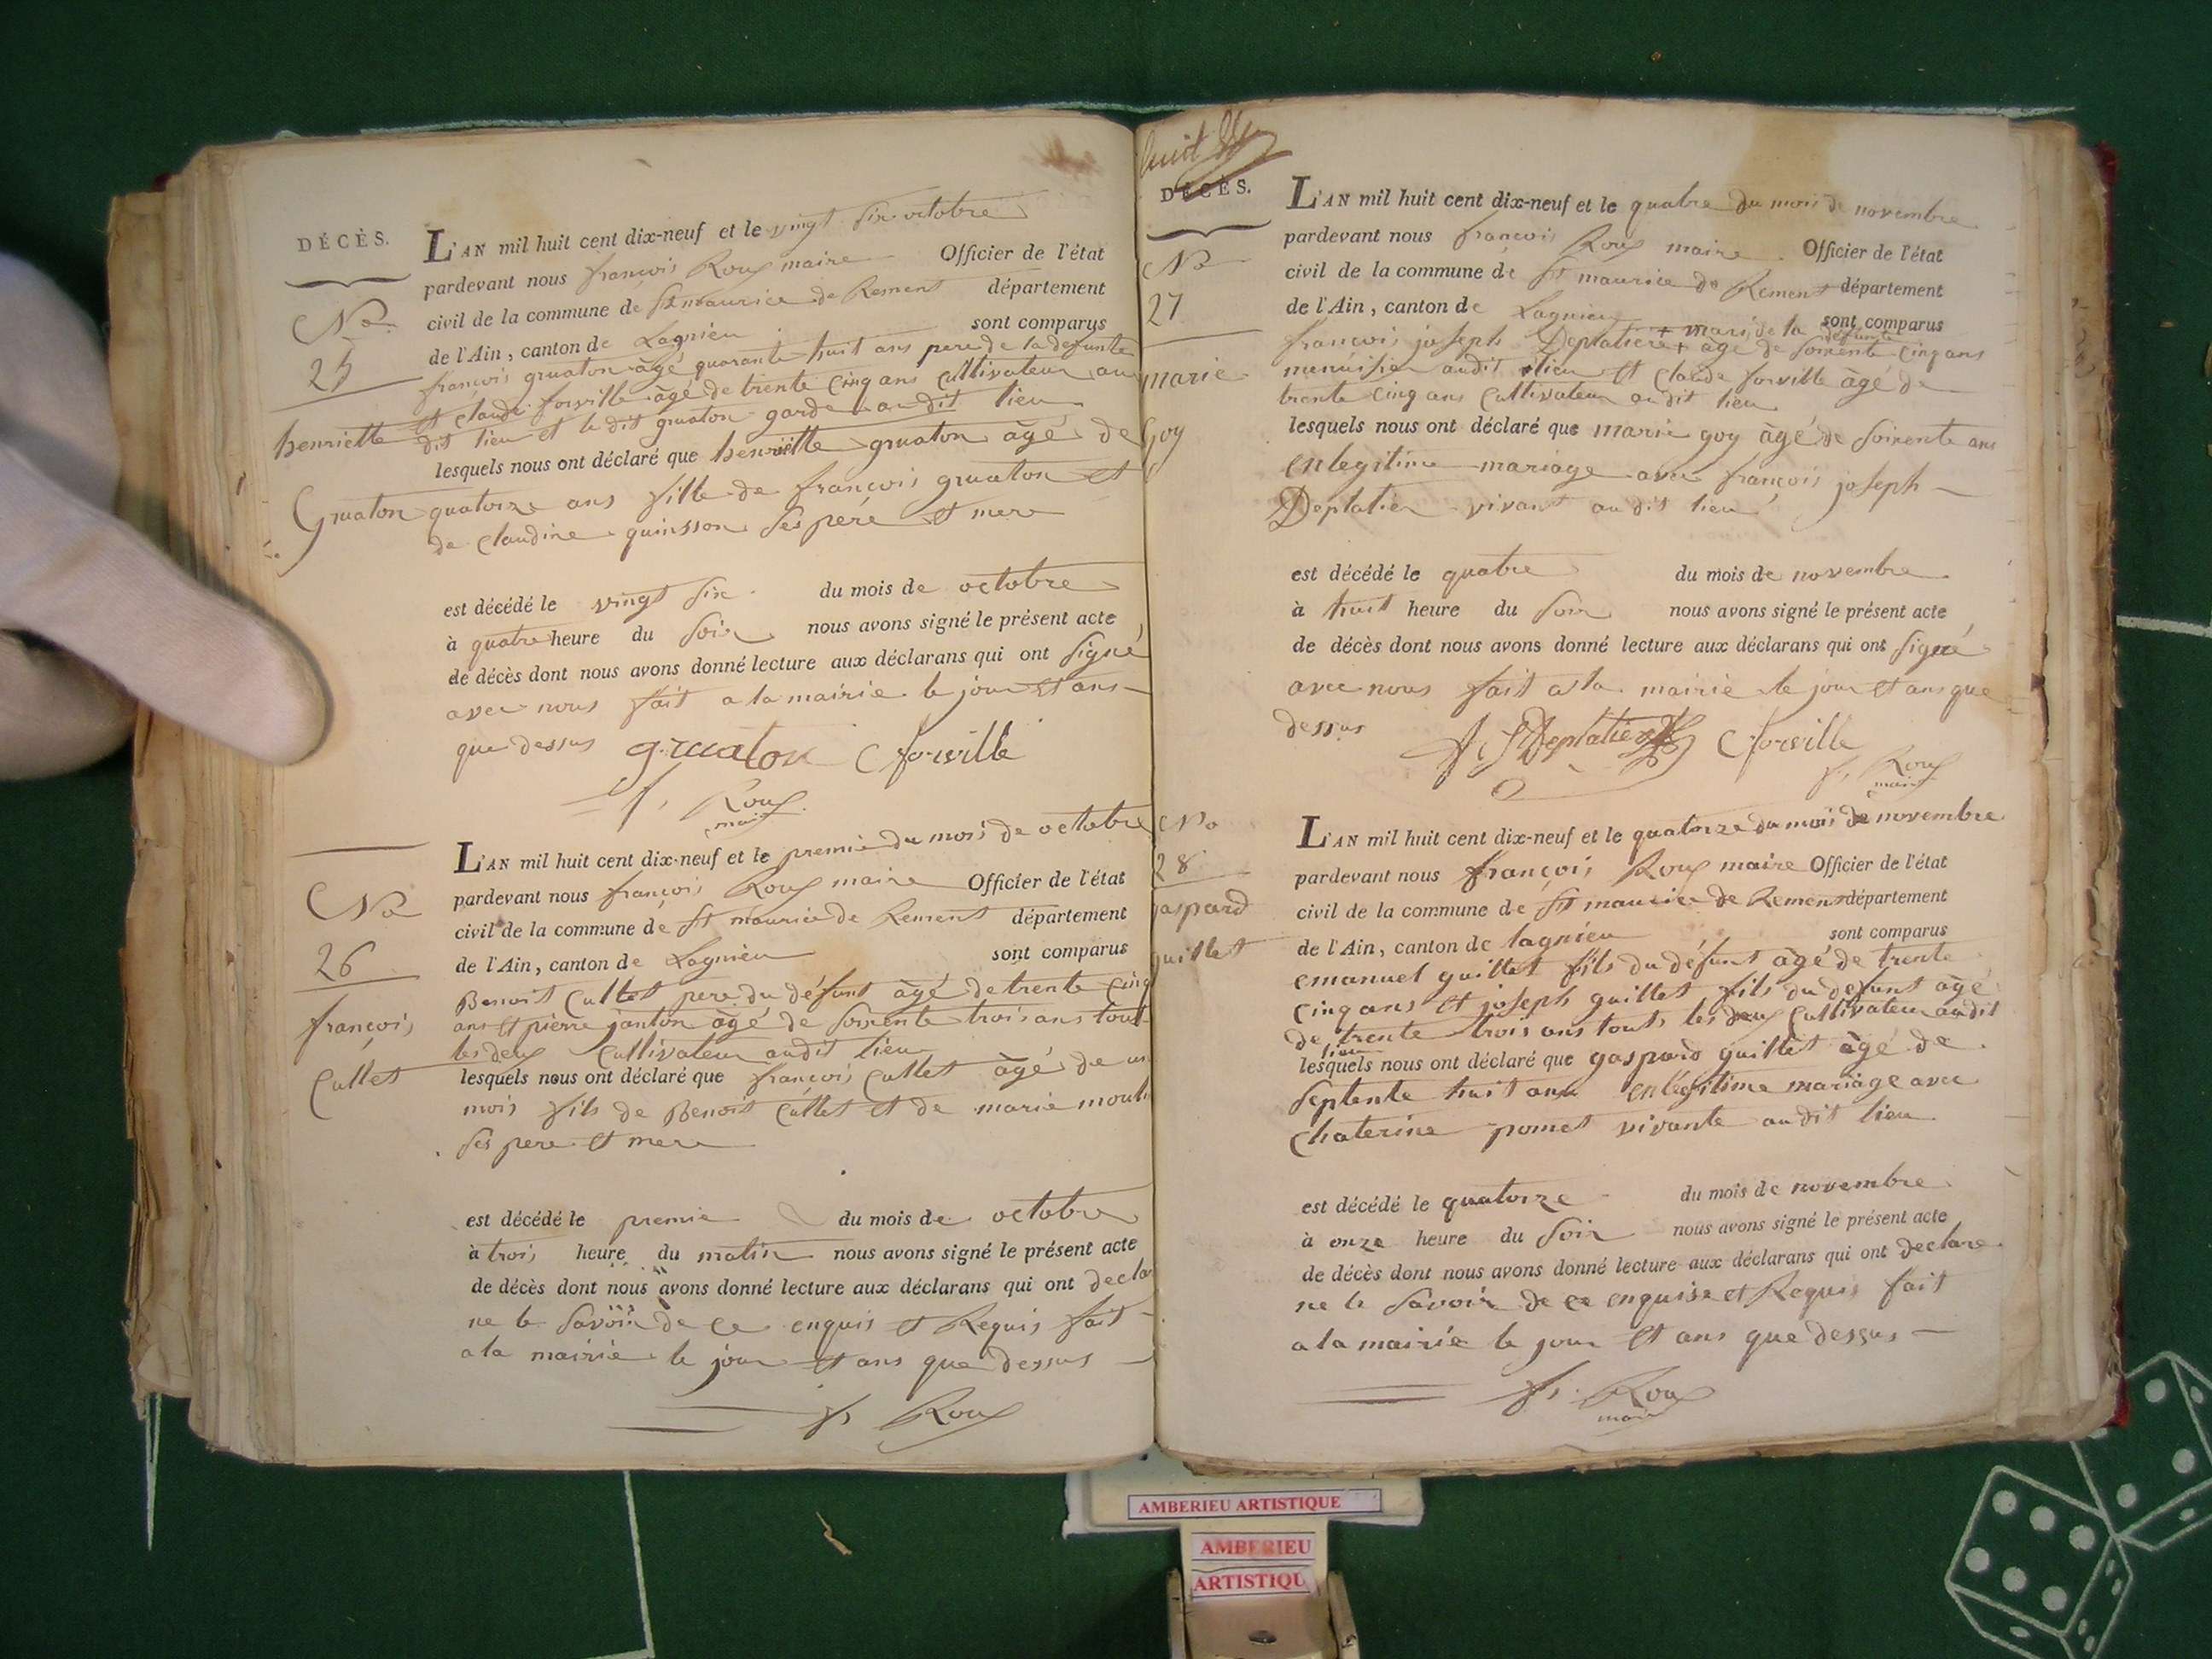 DÉCÈS.
No
25
henriette
Gruaton
L'AN mil huit cent dix-neuf et le vingt six octobre
pardevant nous françois Roux maire Officier de l'état
civil de la commune de St maurice de Remens département
de l'Ain, canton de Lagnieu sont comparus
françois gruaton âgé quarante huit ans pere de la defunte
et claude forville âgé de trente cinq ans cultivateur au
dit lieu et le dit gruaton garde au dit lieu
lesquels nous ont déclaré que henriette gruaton âgé de
quatorze ans fille de françois gruaton et
de claudine quinsson ses peré et mere
est décédé le vingt six du mois de octobre
à quatre heure du soir nous avons signé le présent acte
de décès dont nous avons donné lecture aux déclarans qui ont signé
avec nous fait a la mairie le jour et ans
que dessus gruaton C forville
f, Roux
maire
No
26
françois
Cullet
L'AN mil huit cent dix-neuf et le premie du mois de octobre
pardevant nous françois Roux maire Officier de l'état
civil de la commune de St maurice de Remens département
de l'Ain, canton de Lagnieu sont comparus
Benoit Cullet pere du défunt âgé de trente cinq
ans et pierre janton âgé de soixente trois ans tout
les deux cultivateur audit lieu
lesquels nous ont déclaré que françois Cullet âgé de un
mois fils de Benoit Cullet et de marie
ses pere et mere
est décédé le premie du mois de octobre
à trois heure du matin nous avons signé le présent acte
de décès dont nous avons donné lecture aux déclarans qui ont decla
ne le savoir de ce enquis et Requis fait
a la mairie le jour et ans que dessus
fs Roux
huit
DÉCÈS.
No
27
marie
Goy
L'AN mil huit cent dix-neuf et le quatre du mois de novembre
pardevant nous françois Roux maire Officier de l'état
civil de la commune de St maurice de Remens département
de l'Ain, canton de Lagnieu sont comparus
+ mari de la defunte
françois joseph Deplatiere + âge de soixente cinq ans
menuisier audit lieu et claude forville âgé de
trente cinq ans cultivateur au dit lieu
lesquels nous ont déclaré que marie goy âgé de soixente ans
en legitime mariage avec françois joseph
Deplatier vivant au dit lieu
est décédé le quatre du mois de novembre
à huit heure du soir nous avons signé le présent acte
de décès dont nous avons donné lecture aux déclarans qui ont signé
avec nous fait a la mairie le jour et ans que
dessus Deplatiere C forville
f, Roux
maire
No
28
gaspard
guillet
L'AN mil huit cent dix-neuf et le quatorze du mois de novembre
pardevant nous françois Roux maire Officier de l'état
civil de la commune de St maurice de Remens département
de l'Ain, canton de lagnieu sont comparus
emanuel guillet fils du défunt âgé de trente
cinq ans et joseph guillet fils du defunt âgé
de trente trois ans touts les deux cultivateur audit
lieu
lesquels nous ont déclaré que gaspard guillet âgé de
septente huit ans en légitime mariage avec
Chaterine pomet vivante audit lieu
est décédé le quatorze du mois de novembre
à onze heure du soir nous avons signé le présent acte
de décès dont nous avons donné lecture aux déclarans qui ont declare
ne le savoir de ce enquise et Requis fait
a la mairie le jour et ans que dessus
fs Roux
maire
AMBERIEU ARTISTIQUE
AMBERIEU
ARTISTIQU